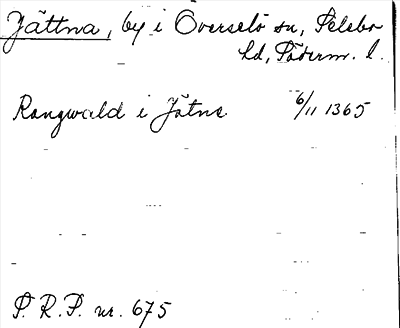 Jättna, by i Överselö sn, Selebo
hd, Söderm. l.
Rangwald i Jätne 6/11 1365
S. R. P. nr. 675